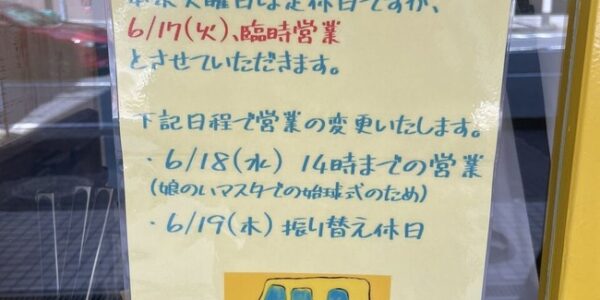 6/17(火)、臨時営業
とさせていただきます。
下記日程で営業の変更いたします。
・6/18(水) 14時までの営業
(娘のいマスタでの始球式のため)
・6/19(木) 振り替え休日